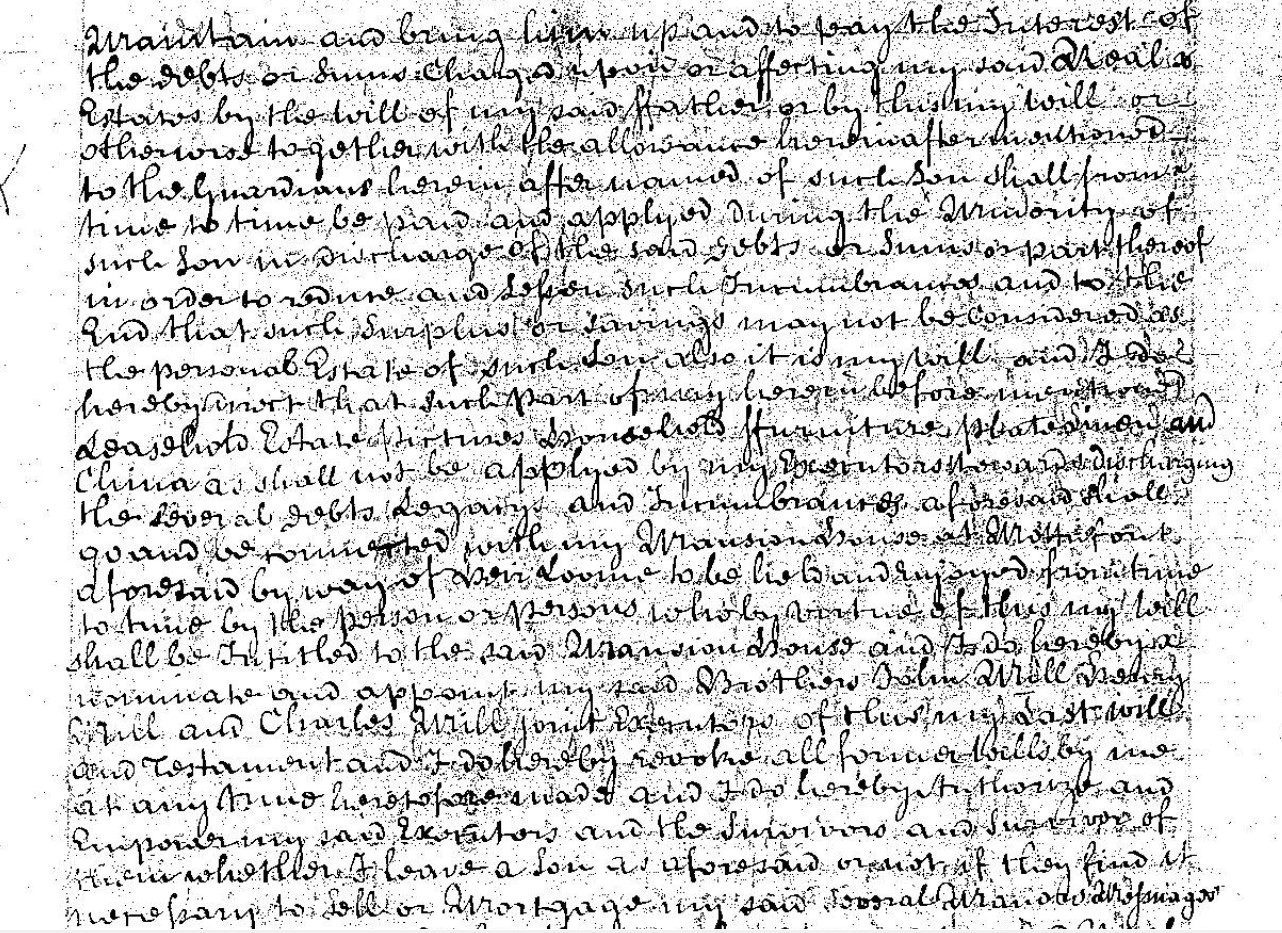 Maintain and bring him up and to pay the Interest of
the debts or Sums Charged upon or affecting my said Real
Estates by the Will of my said ffather or by this my Will or
otherwise together with the allowance hereinafter mentioned
to the Guardians herein after named of such Son shall from
time to time be paid and applyed During the Minority of
such Son in Discharge of the said Debts or Sums or part thereof
in order to reduce and Lessen such Incumbrances and to the
End that such Surplus or Savings may not be Considered as
the personal Estate of such Son also it is my Will and I do
hereby direct that such Part of my herein before mentioned
Leasehold Estate Pictures Household ffurniture plate Linen and
China as shall not be applyed by my Executors towards discharging
the several Debts Legacys and Incumbrances aforesaid shall
go and be connected with my Mansion House at Mottisfont
aforesaid by way of Heir Loome to be held and enjoyed from time
to time by the Person or Persons who by virtue of this my Will
shall be Intitled to the said Mansion House and I do hereby
nominate and appoint my said Brothers John Mill Henry
Mill and Charles Mill joint Executors of this my Last Will
and Testament and I do hereby revoke all former Wills by me
at any time heretofore made and I do hereby Authorize and
Empower my said Executors and the Survivors and Survivor of
them whether I leave a Son as aforesaid or not if they find it
necessary to Sell or Mortgage my said several Manors Messuages